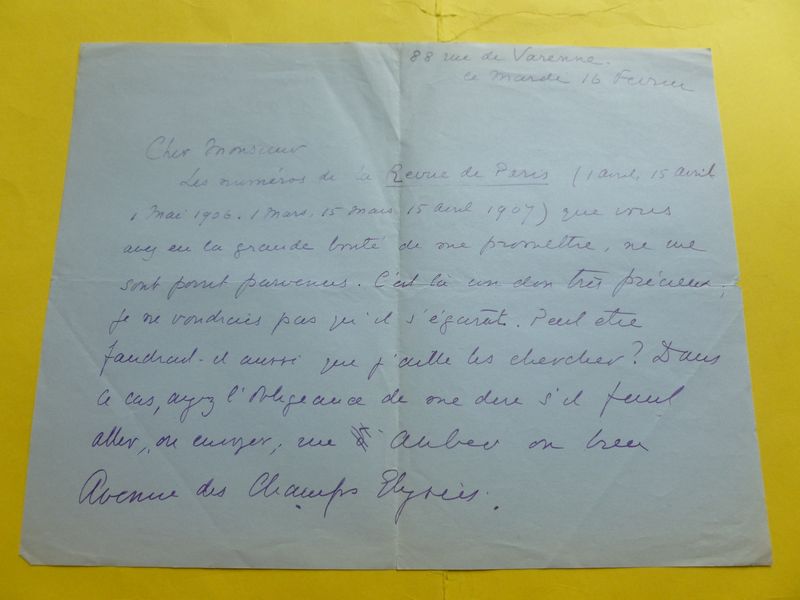 88 rue de Varenne.
ce Mardi 16 Fevrier
Cher Monsieur
Les numéros de la Revue de Paris (1 avril, 15 avril
1 Mai 1906. 1 Mars, 15 Mars 15 avril 1907) que vous
avez eu la grande bonté de me promettre, ne me
sont point parvenus. C'est là un don très précieux,
je ne voudrais pas qu'il s'égarât. Peut etre
faudrait-il aussi que j'aille les chercher? Dans
ce cas, ayez l'obligeance de me dire s'il faut
aller, ou envoyer, rue Auber ou bien
Avenue des Champs Elysées.